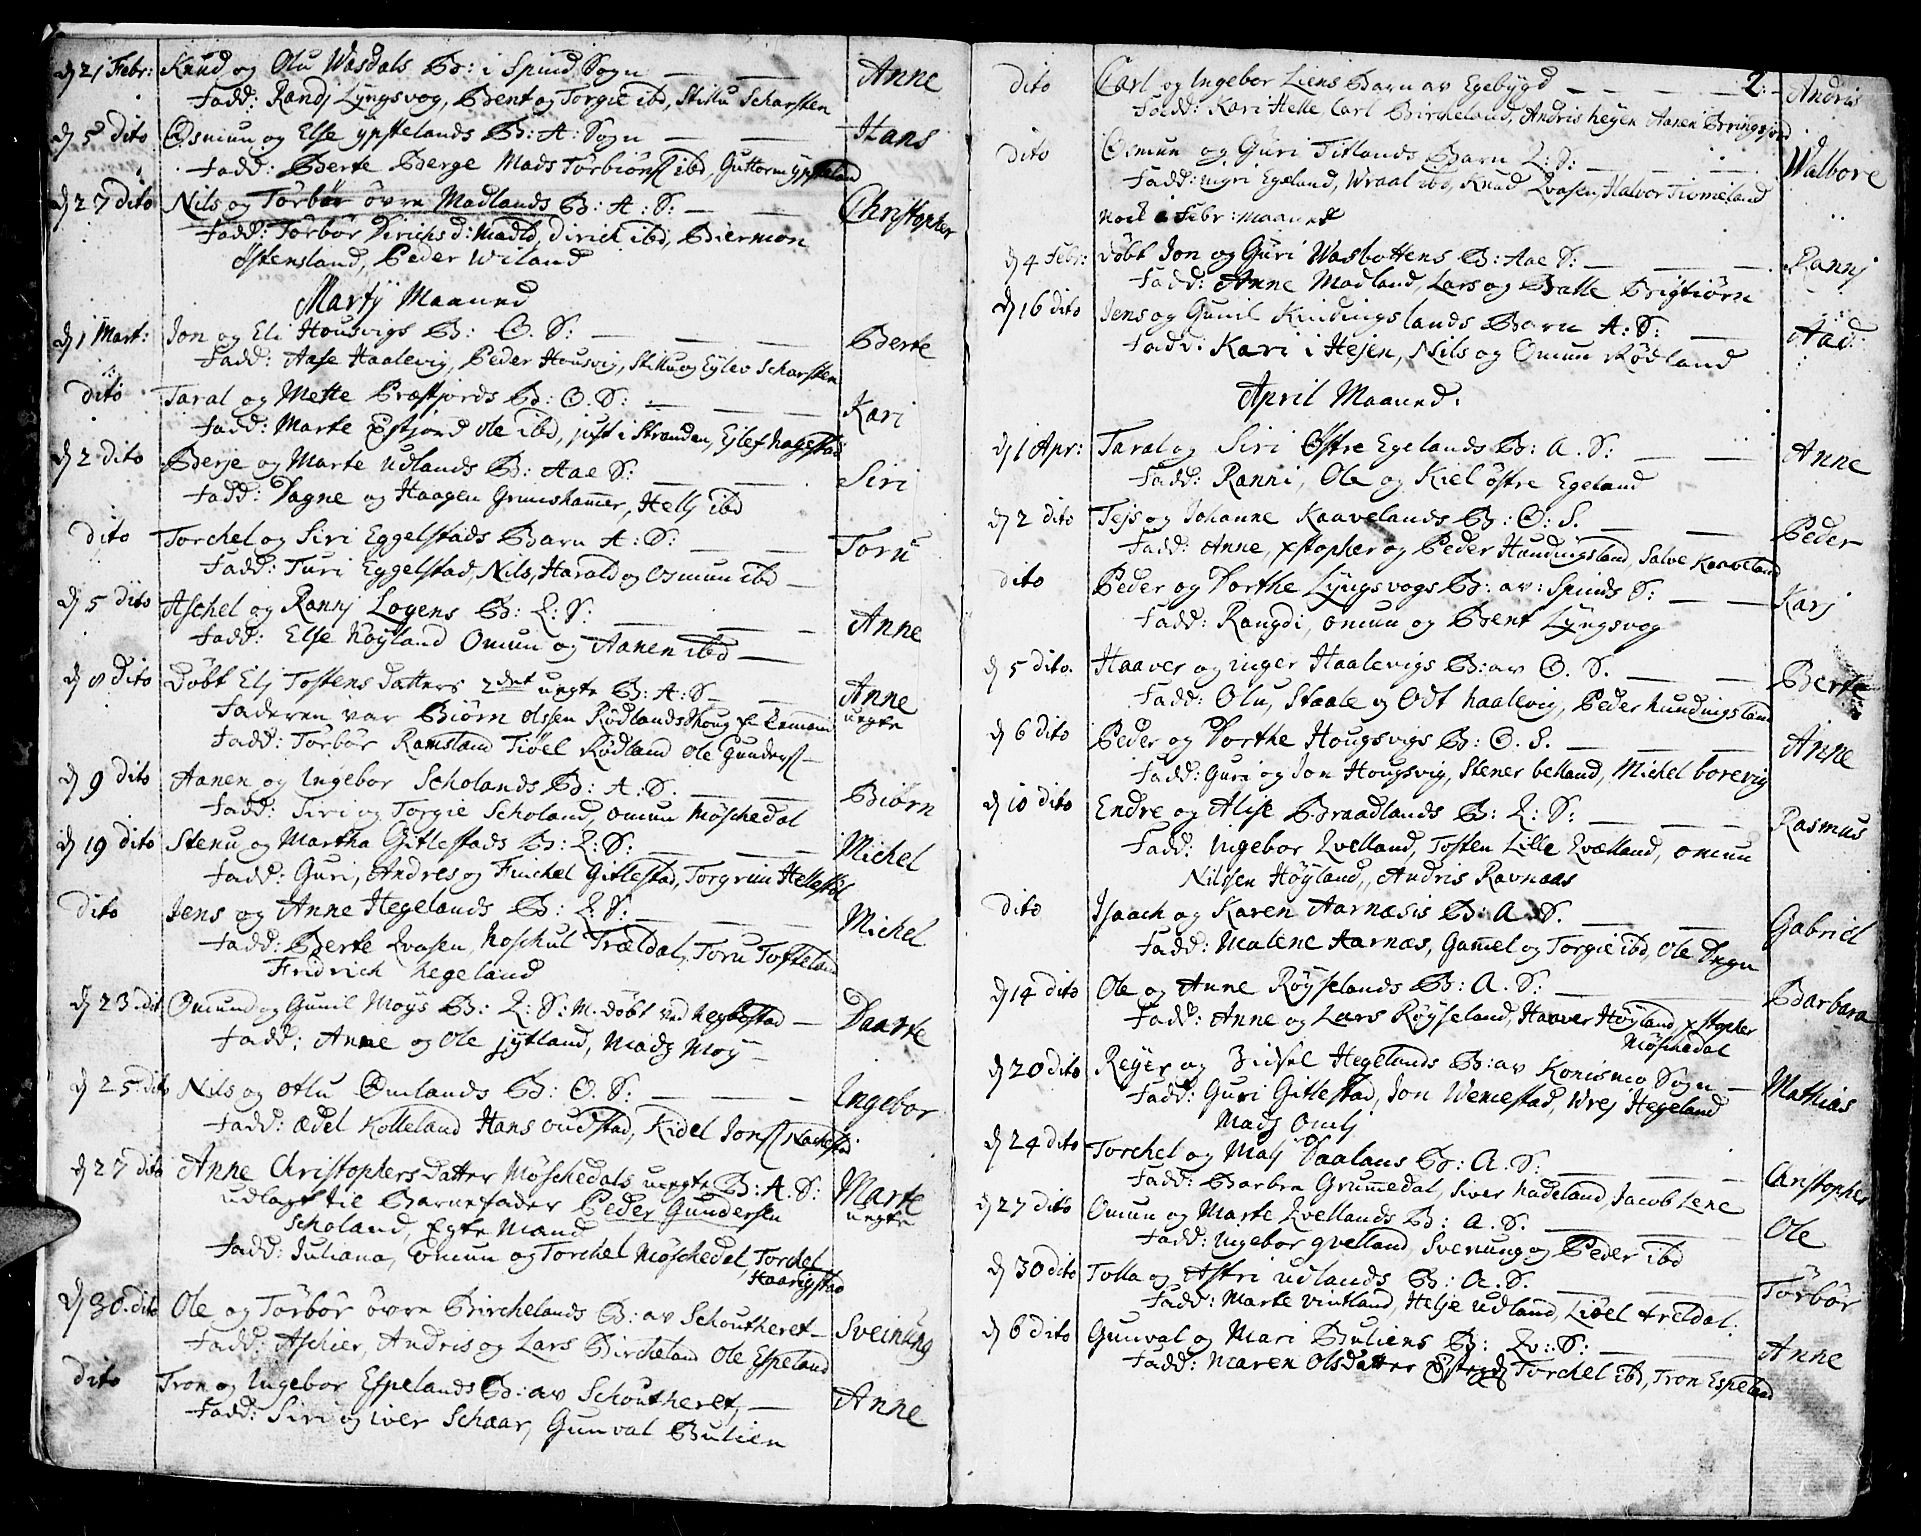 d 21 Febr: Knud og Olu Wasdals B: i Spind Sogn — — Anne
Fadd: Randj Lyngsvog, Bent og Torgie ibd, Stillu Scharsten
d 5 dito Osmun og Else ypstelands B: A: Sogn — — Hans
Fadd: Berte Berge Mads Torbiörns ibd, Guttorm ypsteland
d 27 dito Nils og Törbör övre Madlands B: A: S: — — Christopher
Fadd: Törbör Dirichs d: Madld, Dirich ibd, Biermon
Östensland, Peder Wiland
Martij Maaned
d 1 Mart: Jon og Eli Housvigs B: O. S: — — Berte
Fadd: Aase Haalevig, Peder Housvig, Stillu og Eylev Scharsten
dito Taral og Mette Præstjords B: O. S: — — Kari
Fadd: Marte Pstjord Ole ibd, just i Stranden, Eylef hagestad
d 2 dito Berje og Marte Udlands B: Aae S: — — Siri
Fadd: Dagne og Haagen Grimshamer, Hellj ibd
dito Torchel og Siri Eggelstads Barn A: S: — — Toru
Fadd: Turi Eggelstad, Nils, Harald og Osmun ibd —
d 5 dito Aschel og Rannj Logens B: L: S: — — Anne
Fadd: Else höyland Omun og Aanen ibd —
d 8 dito Döbt Elj Tostens Datters 2det uegte B: A: S — Anne
uegte
Faderen var Biörn Olssen Rödlands Houg
Fadd: Törbör Ramsland Tiöel Rödland Ole Gunders —
d 9 dito Aanen og Ingebor Scholands B: A: S: — — Biörn
Fadd: Siri og Torgie Scholand, Omun Möschedal
d 19 dito Stenu og Martha Gitlestads B: L: S: — — Michel
Fadd: Guri, Andres og Finchel Gitlestad, Torgrim Hellestöl
dito Jens og Anne Hegelands B: L: S: — — Michel
Fadd: Berte Qvasen, Roschul Trældal, Toru Tofteland
Fridrich hegeland
d 23 dit Omund og Gunil Moÿs B: L: S: M. döbt ved — Daarte
Fadd: Anne og Ole jÿtland, Mads Moÿ —
d 25 dito Nils og Ollu Omlands B: O. S: — — Ingebor
Fadd: Ædel Kolleland Hans oudstad, Kidel Jons
d 27 dito Anne Christophers Datter Möschedals uegte B: A. S: Marte
uegte
udlagt til Barnefader Peder Gundersen
Scholand, Egte Mand
Fadd: Juliana, Omun og Torchel Möschedal, Torchel
Haarigstad
d 30 dito Ole og Törbör övre Birchelands B: av Schoutheret — Sveinung
Fadd: Aschier, Andris og Lars Bircheland Ole Espeland
dito Tron og Ingebor Espelands B: av Schoutheret, — Anne
Fadd: Siri og iver Schaar, Gunval Bulien
2:
dito Carl og Ingebor Liens Barn av Egebÿgd — — Andris
Fadd: Kari Helle, Carl Bircheland, Andris heyen Aanen Bringsjord
dito Osmun og Guri Titlands Barn L: S: — — Walbore
Fadd: Sigri Egeland, Wraal ibd, Knud Qvasen, Halvor Tiomeland
Nock i Febr: Maaned
d 4 Febr: döbt Jon og Guri Wasbottens B: Aae S: — — Rannj
Fadd: Anne Madland, Lars og Salle Brigtiörn
d 16 dito Jens og Gunil Kindingslands Barn A: S: — Aad:
Fadd: Kari i Hejen, Nils og Omun Rödland
April Maaned.
d 1 Apr: Taral og Siri Östre Egelands B: A. S: — — Anne
Fadd: Ranni, Ole og Kiel östre Egeland
d 2 dito Tejs og Johanne Kaavelands B: O: S. — — Peder
Fadd: Anne, xstopher og Peder Hundingsland, Salve Kaaveland
dito Peder og Dorthe Lyngsvogs B: av: Spinds S: — — Karj
Fadd: Rangdi, Omun og Bent Lyngsvog
d 5 dito. Haaver og inger Haalevigs B: av O. S. — — Berte
Fadd: Olu, Staale og Odt haalevig, Peder hundingsland
d 6 dito Peder og Dorthe Hougsvigs B: O. S. — — Anne
Fadd: Guri og Jon Hougsvig, Stener belland, Michel borevig
d 10 dito Endre og Alise Braadlands B: L: S: — — Rasmus
Fadd: Ingebor Qvelland, Tosten Lille Qvælland, omun
Nilssen Höyland, Andris Ravnaas
dito Isaach og Karen Aarnæsis B: A. S. — — Gabriel
Fadd: Malene Aarnæs, Gamel og Torgie ibd, Ole Degn
d 14 dito Ole og Anne Röyselands B: A. S: — — Barbara
Fadd: Anne og Lars Röyseland, Haaver Höyland, xstopher
Möschedal
d 20 dito Reyer og Zidsel Hegelands B: av Konismo Sogn — Mathias
Fadd: Guri Gitlestad, Jon Wemestad, Wrej Hegeland
Mads Omlj
d 24 dito Torchel og Malj Daalans B: A. S: — — Christopher
Fadd: Barbra Grummedal, Siver hadeland, Jacob Lene
d 27 dito Omun og Marte Qvellands B: A. S. — — Ole
Fadd: Ingebor qvelland, Svenung og Peder ibd
d 30 dito Tolla og Astri udlands B: A. S. — — Törbör
Fadd: Marte Vintland, Helje udland, Liöel treldal:
d 6 dito Gunval og Mari Buliens B: Qv: S: — — Anne
Fadd: Maren Olsdatter Torchel ibd, Tron Espeland